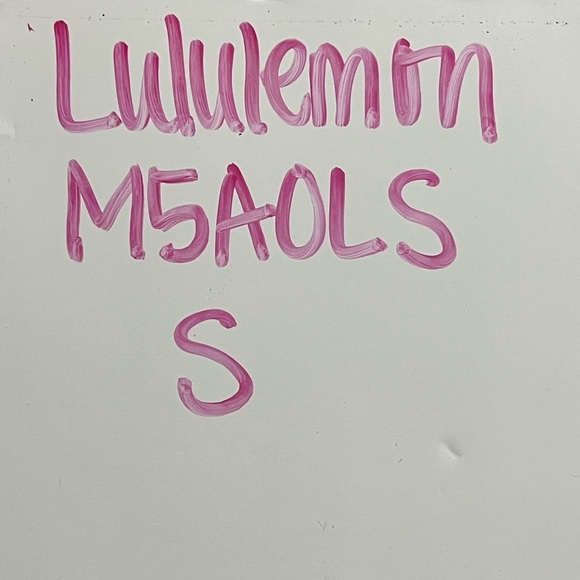 Lululemon
M5AOLS
S